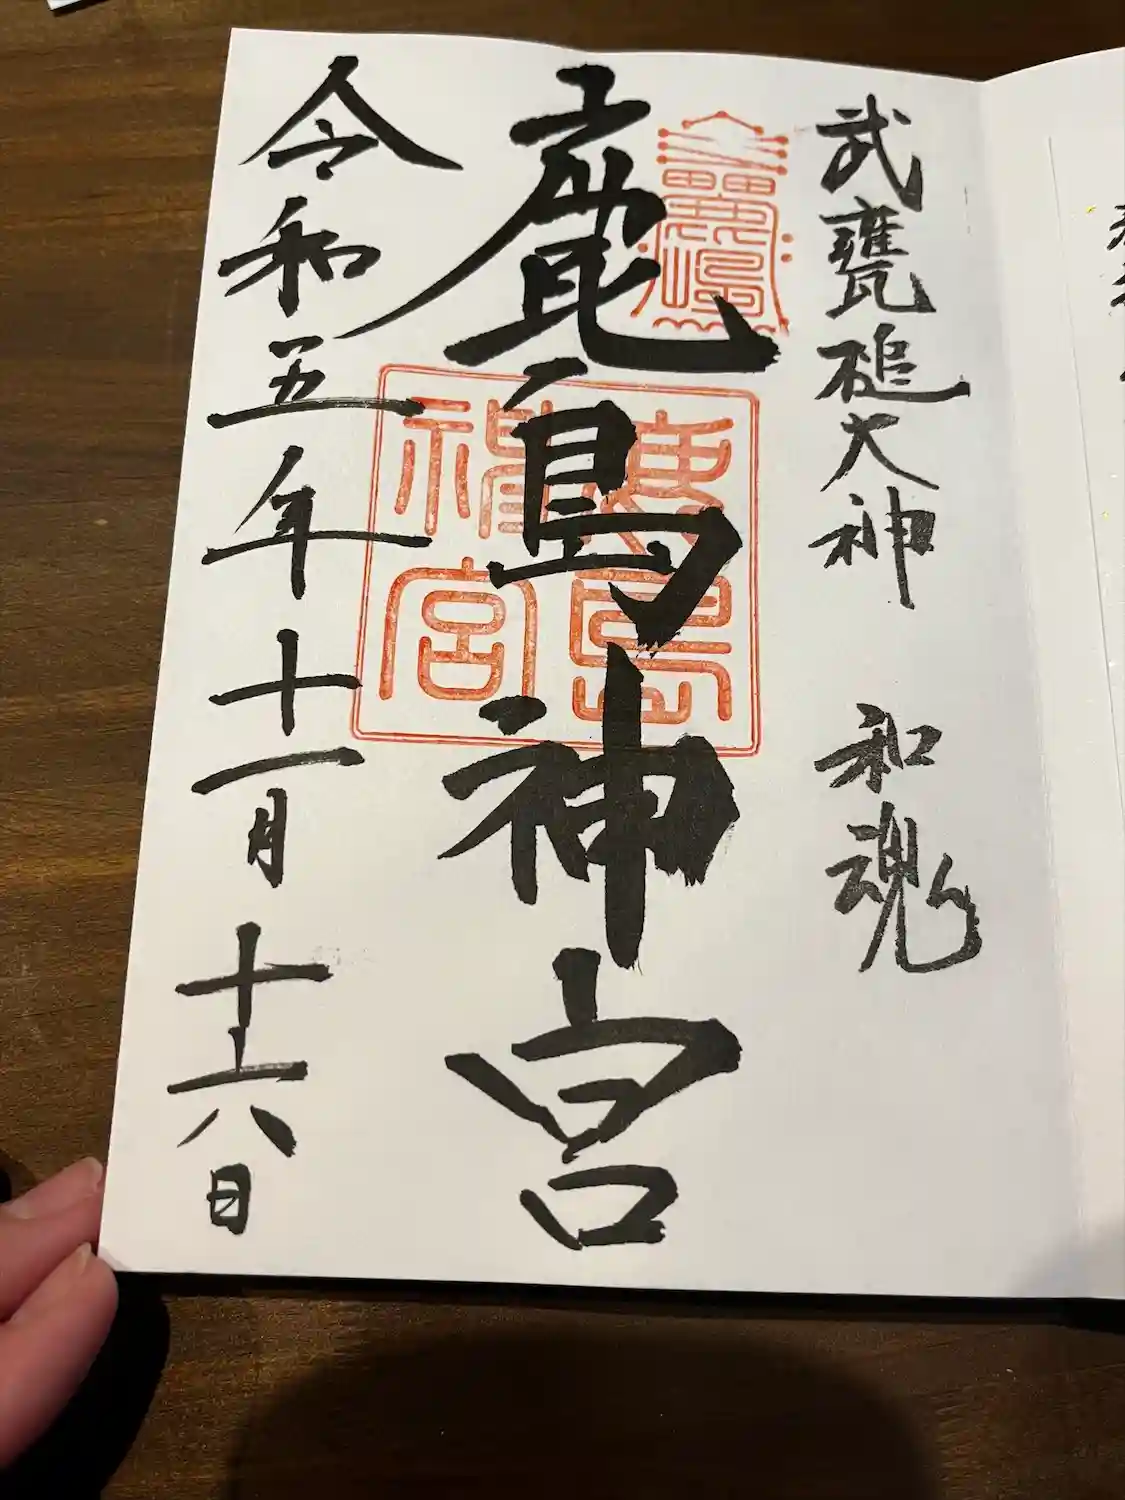 武甕槌大神　和魂
鹿島神宮
鹿島神宮
令和五年十一月十六日